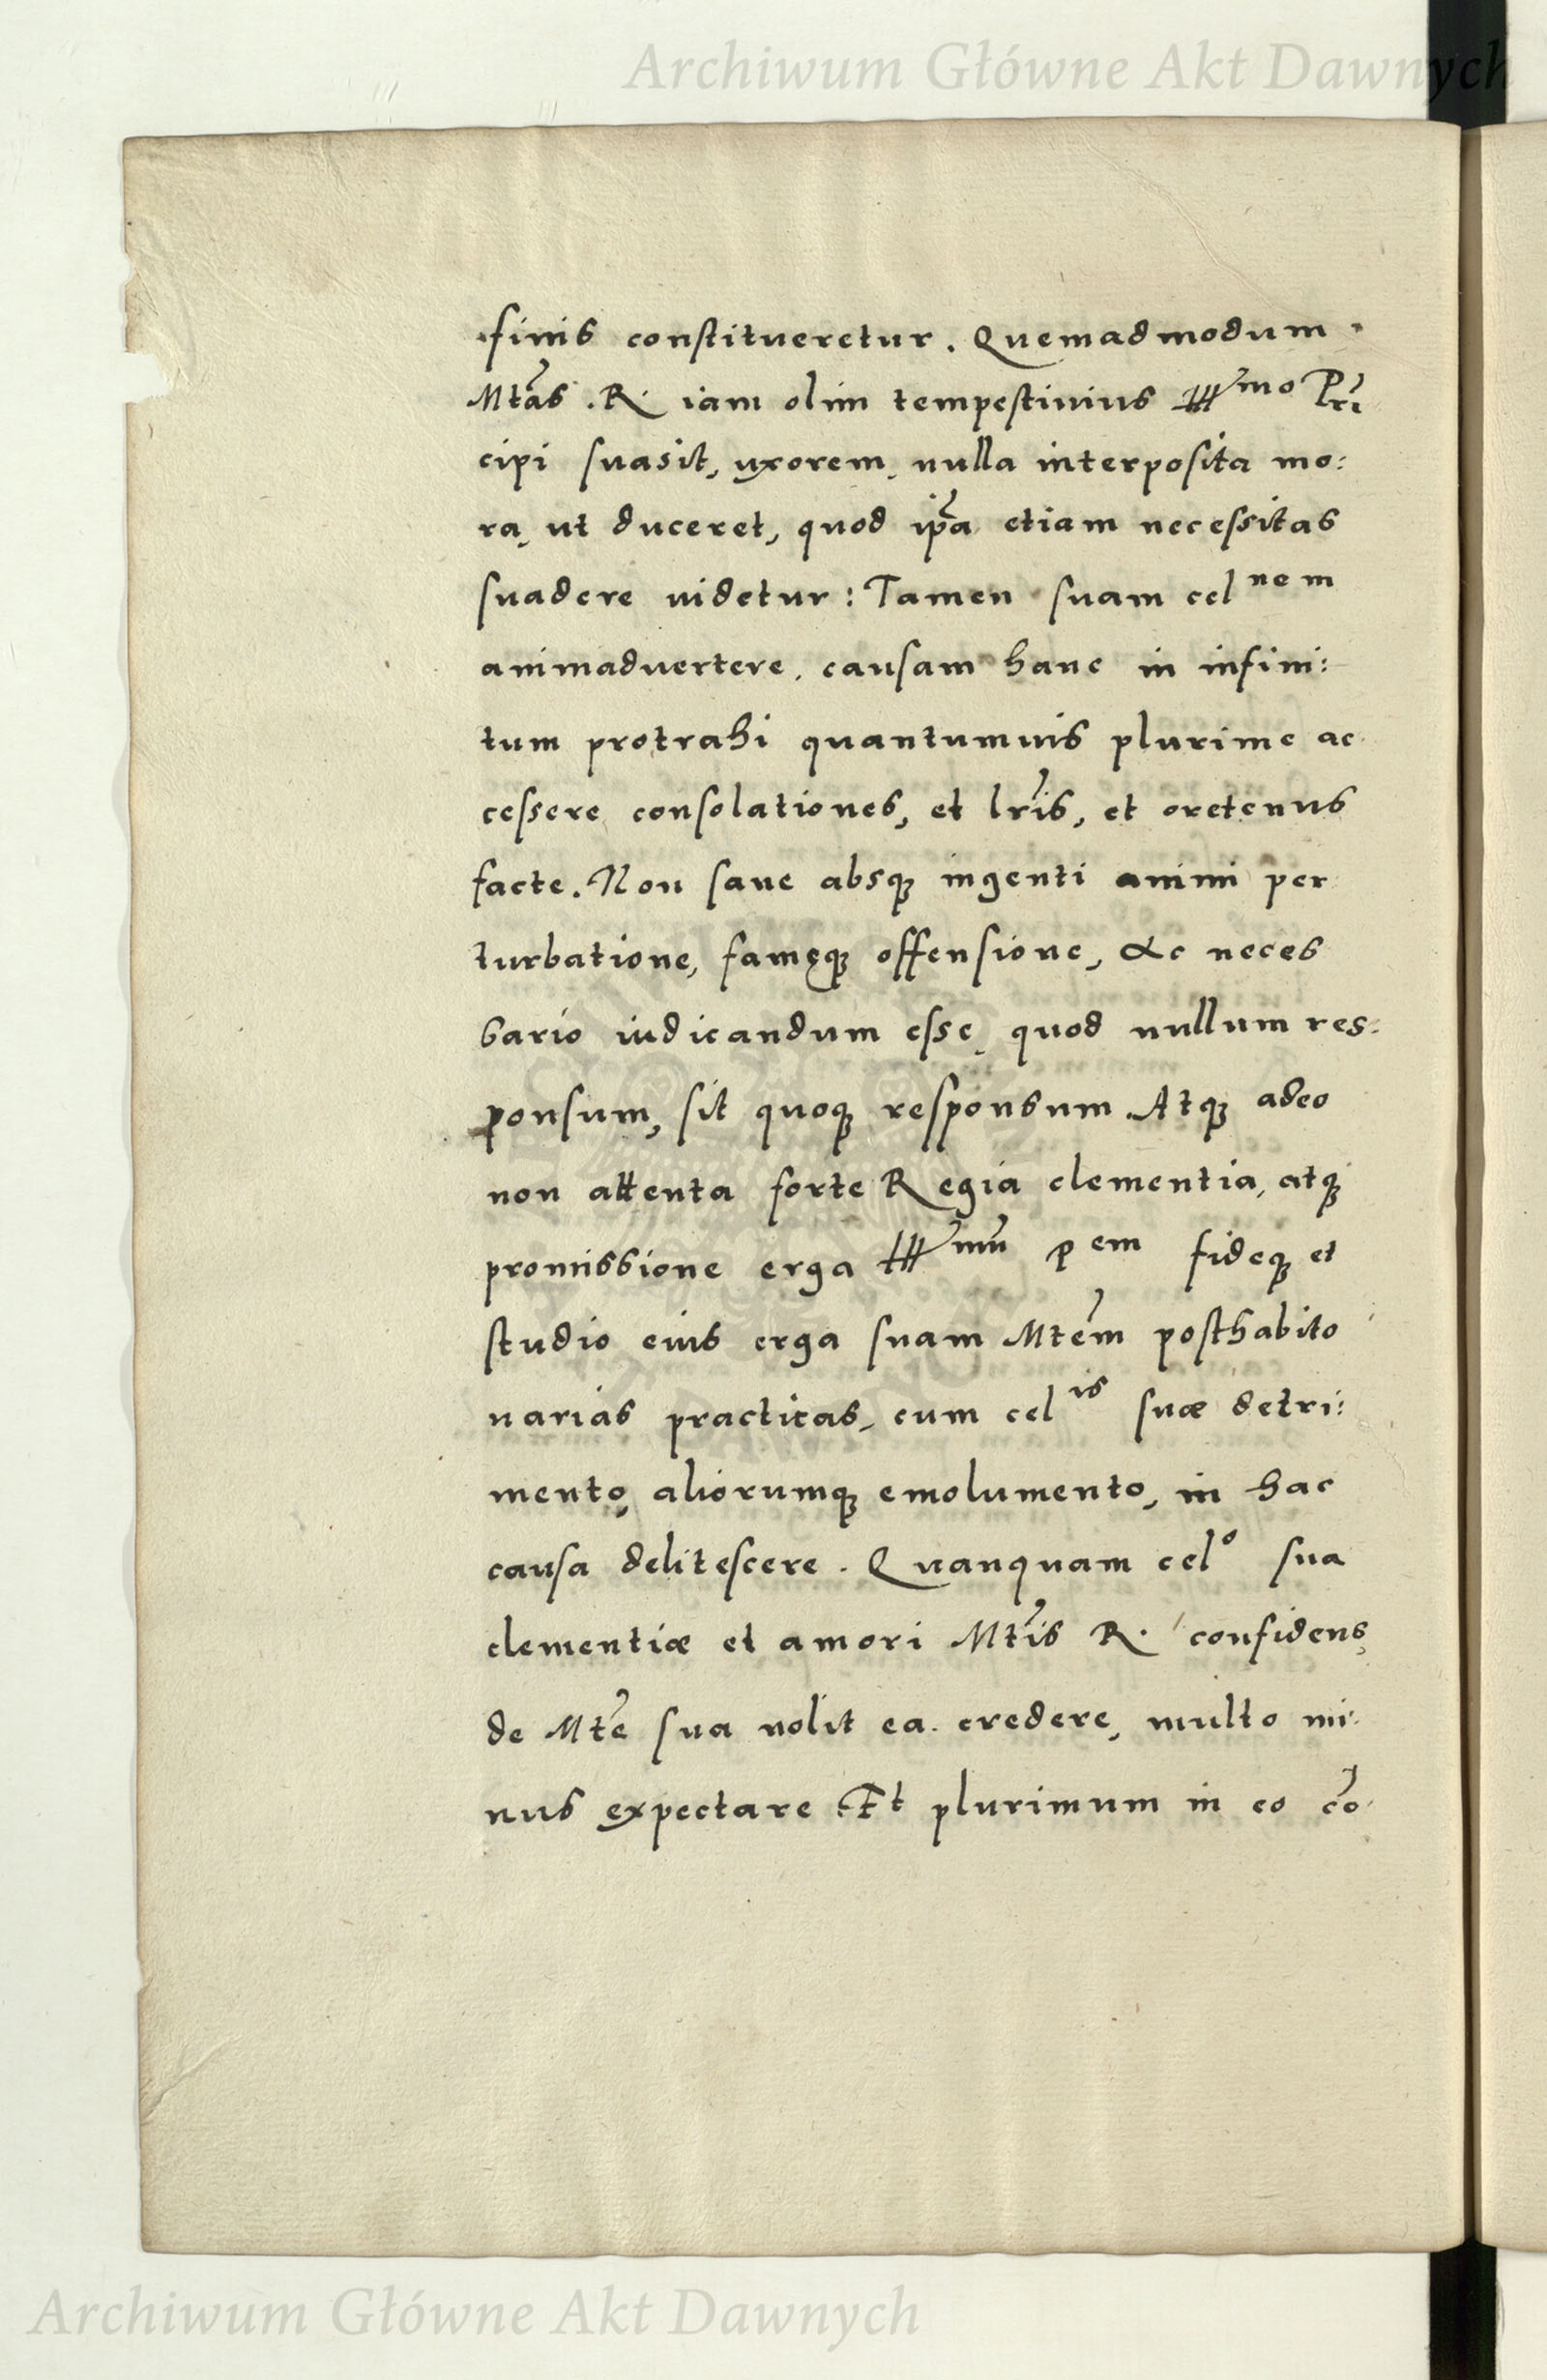 Archiwum Główne Akt Dawnych
finis constitueretur. Quemadmodum
Mtãs. R. iam olim tempestiuius Ill^mo Pri
cipi suasit, uxorem, nulla interposita mo:
ra, ut duceret, quod ip̃a etiam necessitas
suadere uidetur: Tamen suam cel^nem
animaduertere, causam hanc in infini:
tum protrahi quantumuis plurime ac
cessere consolationes, et lr̃is, et oretenus
facte. Non sane absq; ingenti animi per
turbatione, famęq; offensione, &c neces
sario iudicandum esse, quod nullum res:
ponsum, sit quoq; responsum. Atq; adeo
non attenta forte Regia clementia, atq;
promissione erga Ill^mũ P^em fideq; et
studio eius erga suam Mtẽm posthabito
uarias practicas, cum cel^is suæ detri:
mento, aliorumq; emolumento, in hac
causa delitescere. Quanquam cel^o sua
clementiæ et amori Mtĩs R. confidens,
de Mtẽ sua nolit ea credere, multo mi
nus expectare Et plurimum in eo cõ
Archiwum Główne Akt Dawnych